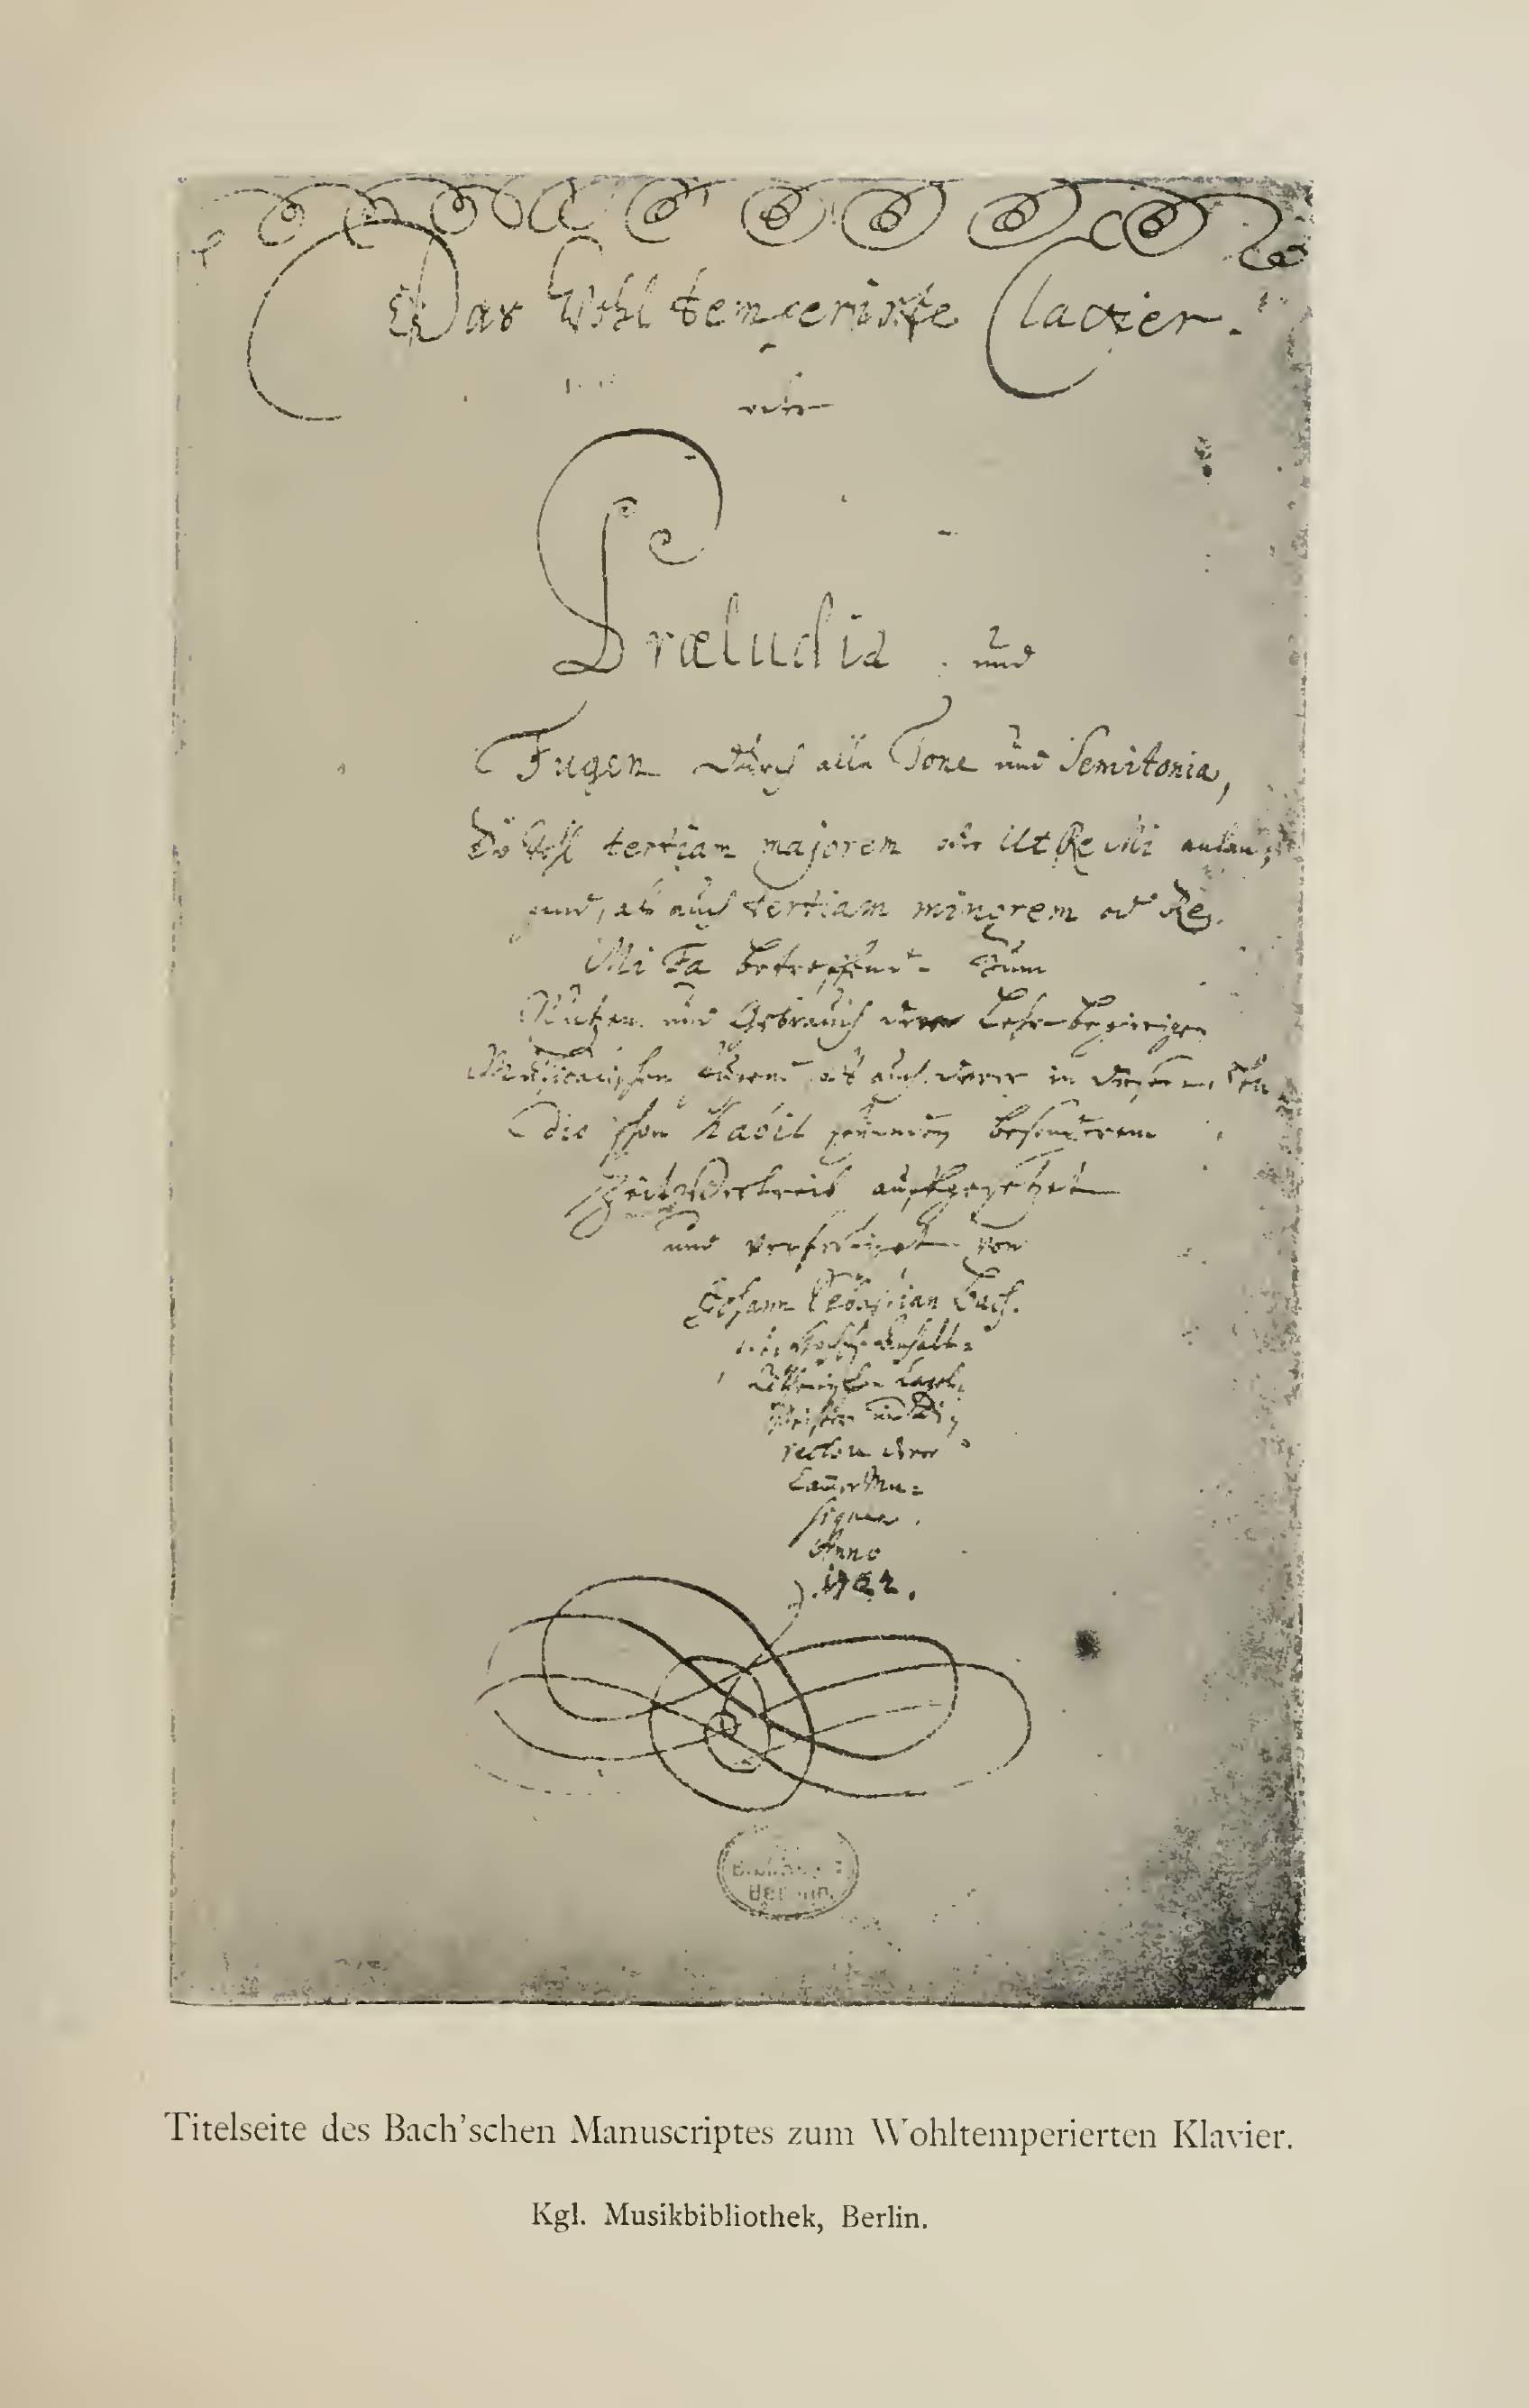 Das Wohltemperirte Clavier.
oder
Præludia, und
Fugen durch alle Tone und Semitonia,
So wohl tertiam majorem oder Ut Re Mi anlan-
gend, als auch tertiam minorem oder Re
Mi Fa betreffend. Zum
Nutzen und Gebrauch der Lehr-begierigen
Musicalischen Jugend, als auch derer in diesem stu-
dio schon habil seyenden besonderem
ZeitVertreib auffgesetzet
und verfertiget von
Johann Sebastian Bach.
p. t. Hochf. Anhalt-
Cöthenischen Capel-
Meistern und Di-
rectore derer
CammerMu-
siquen.
Anno
1722.
Berlin
Titelseite des Bach'schen Manuscriptes zum Wohltemperierten Klavier.
Kgl. Musikbibliothek, Berlin.